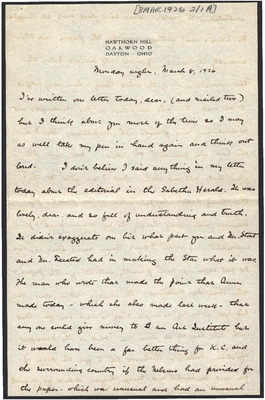 [8 MAR 1926 2/1A]
HAWTHORN HILL
OAKWOOD
DAYTON OHIO
Monday night, March 8, 1926
I've written one letter today, dear, (and mailed two)
but I think about you more of the time so I may
as well take my pen in hand again and think out
loud. I don't believe I said anything in my letter
today about the editorial in the Sabetha Herald. It was
lovely, dear, and so full of understanding and truth.
It didn't exaggerate one bit what part you and Mr.
and Mr. had in making the Star what it was.
The man who wrote that made the point that
made today - which she also made last week - that
any one could give money to an Art Institute but
it would have been a far better thing for K.C. and
the surrounding country if the Nelsons had provided for
the paper - which was unusual and had an unusual